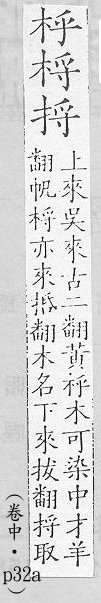 㭔㭩捋
上來吳來古二翻黃㭔木可染中才羊
翻帆㭩亦來翻木名下來拔翻捋取
（卷中・p32a）